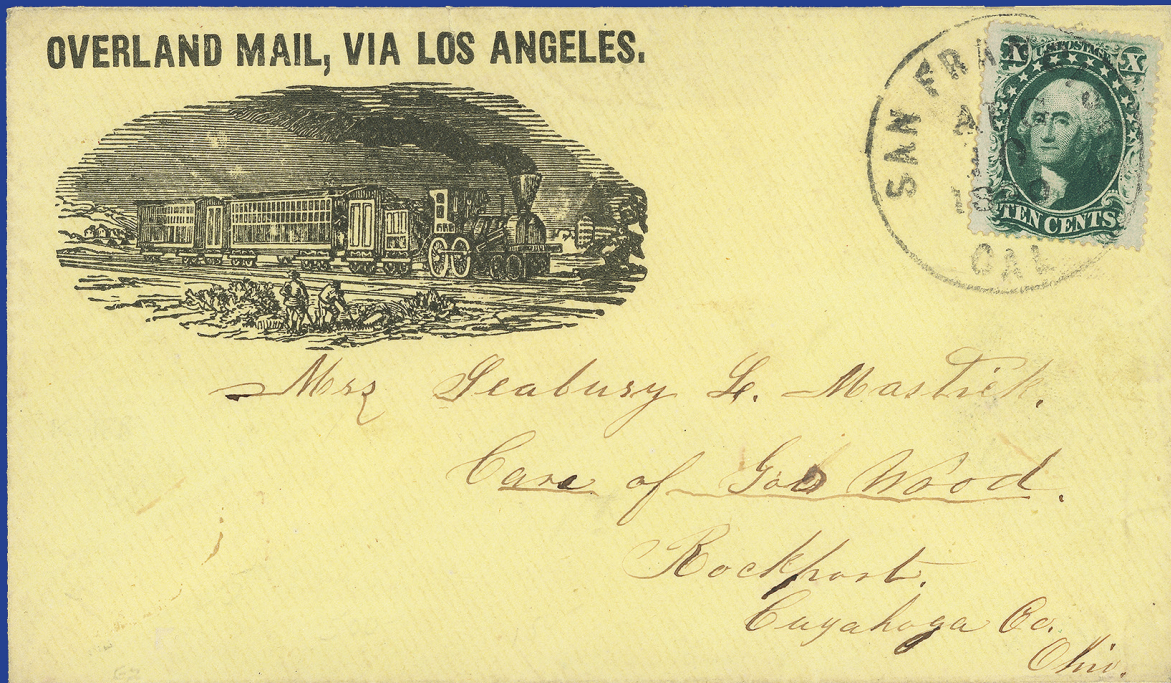 OVERLAND MAIL, VIA LOS ANGELES.
SAN FRA
CAL
X U.S. POSTAGE X
TEN CENTS
Mrs Seabury L. Mastick.
Care of Gov Wood.
Rockport.
Cuyahoga Co.
Ohio.